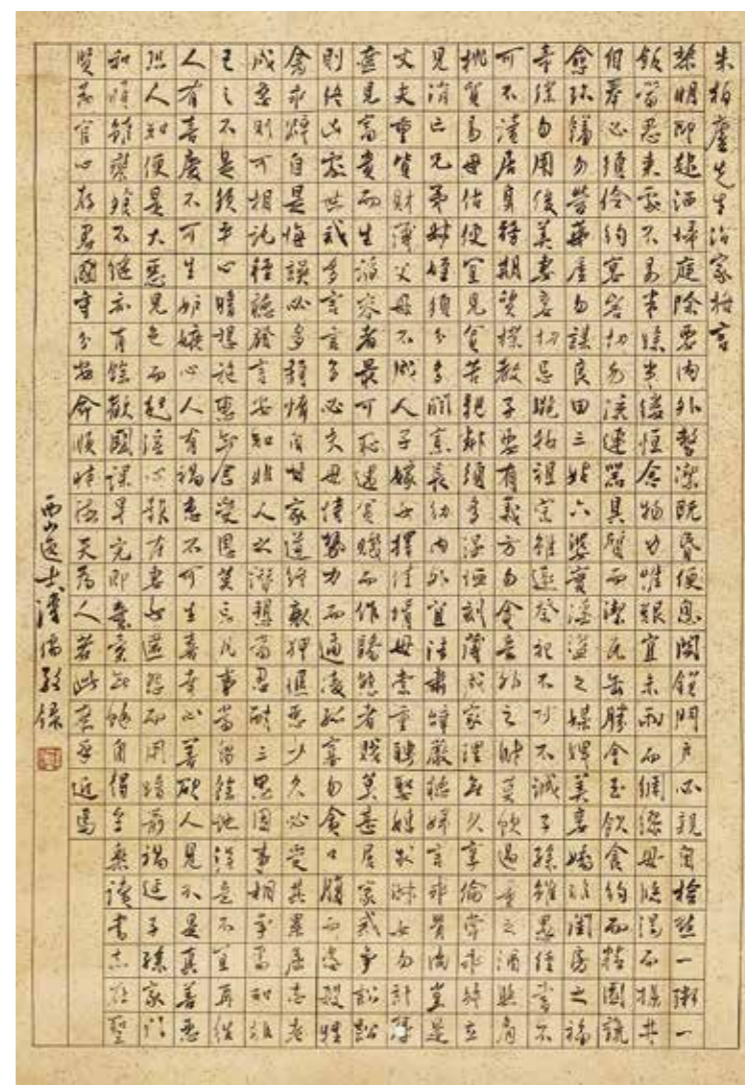 朱柏廬先生治家格言
黎明即起洒掃庭除要內外整潔既昏便息關鎖門戶必親自檢點一粥一
飯當思來處不易半絲半縷恒念物力惟艱宜未雨而綢繆毋臨渴而掘井
自奉必須儉約宴客切勿流連器具質而潔瓦缶勝金玉飲食約而精園蔬
愈珍饈勿營華屋勿謀良田三姑六婆實淫盜之媒婢美妾嬌非閨房之福
奴僕勿用俊美妻妾切忌艷妝祖宗雖遠祭祀不可不誠子孫雖愚經書不
可不讀居身務期質樸教子要有義方勿貪意外之財莫飲過量之酒與肩
挑貿易毋佔便宜見貧苦親鄰須多溫恤刻薄成家理無久享倫常乖舛立
見消亡兄弟叔姪須分多潤寡長幼內外宜法肅辭嚴聽婦言乖骨肉豈是
丈夫重資財薄父母不成人子嫁女擇佳壻毋索重聘娶媳求淑女勿計厚
奩見富貴而生諂容者最可恥遇貧賤而作驕態者賤莫甚居家戒爭訟訟
則終凶處世戒多言言多必失毋恃勢力而逼凌孤寡勿貪口腹而恣殺牲
禽乖僻自是悔誤必多頹惰自甘家道終狎暱惡少久必受其累屈志老
成急則可相託輕聽發言安知非人之譖愬當忍耐三思因事相爭焉知非
己之不是須平心暗想施惠勿念受恩莫忘凡事當留餘地得意不宜再往
人有喜慶不可生妒嫉心人有禍患不可生喜幸心善欲人見不是真善惡
恐人知便是大惡見色而起淫心報在妻女匿怨而用暗箭禍延子孫家門
和順雖饔飧不繼亦有餘歡國課早完即囊橐無餘自得至樂讀書志在聖
賢為官心存君國守分安命順時聽天為人若此庶乎近焉
西山逸士溥儒敬錄